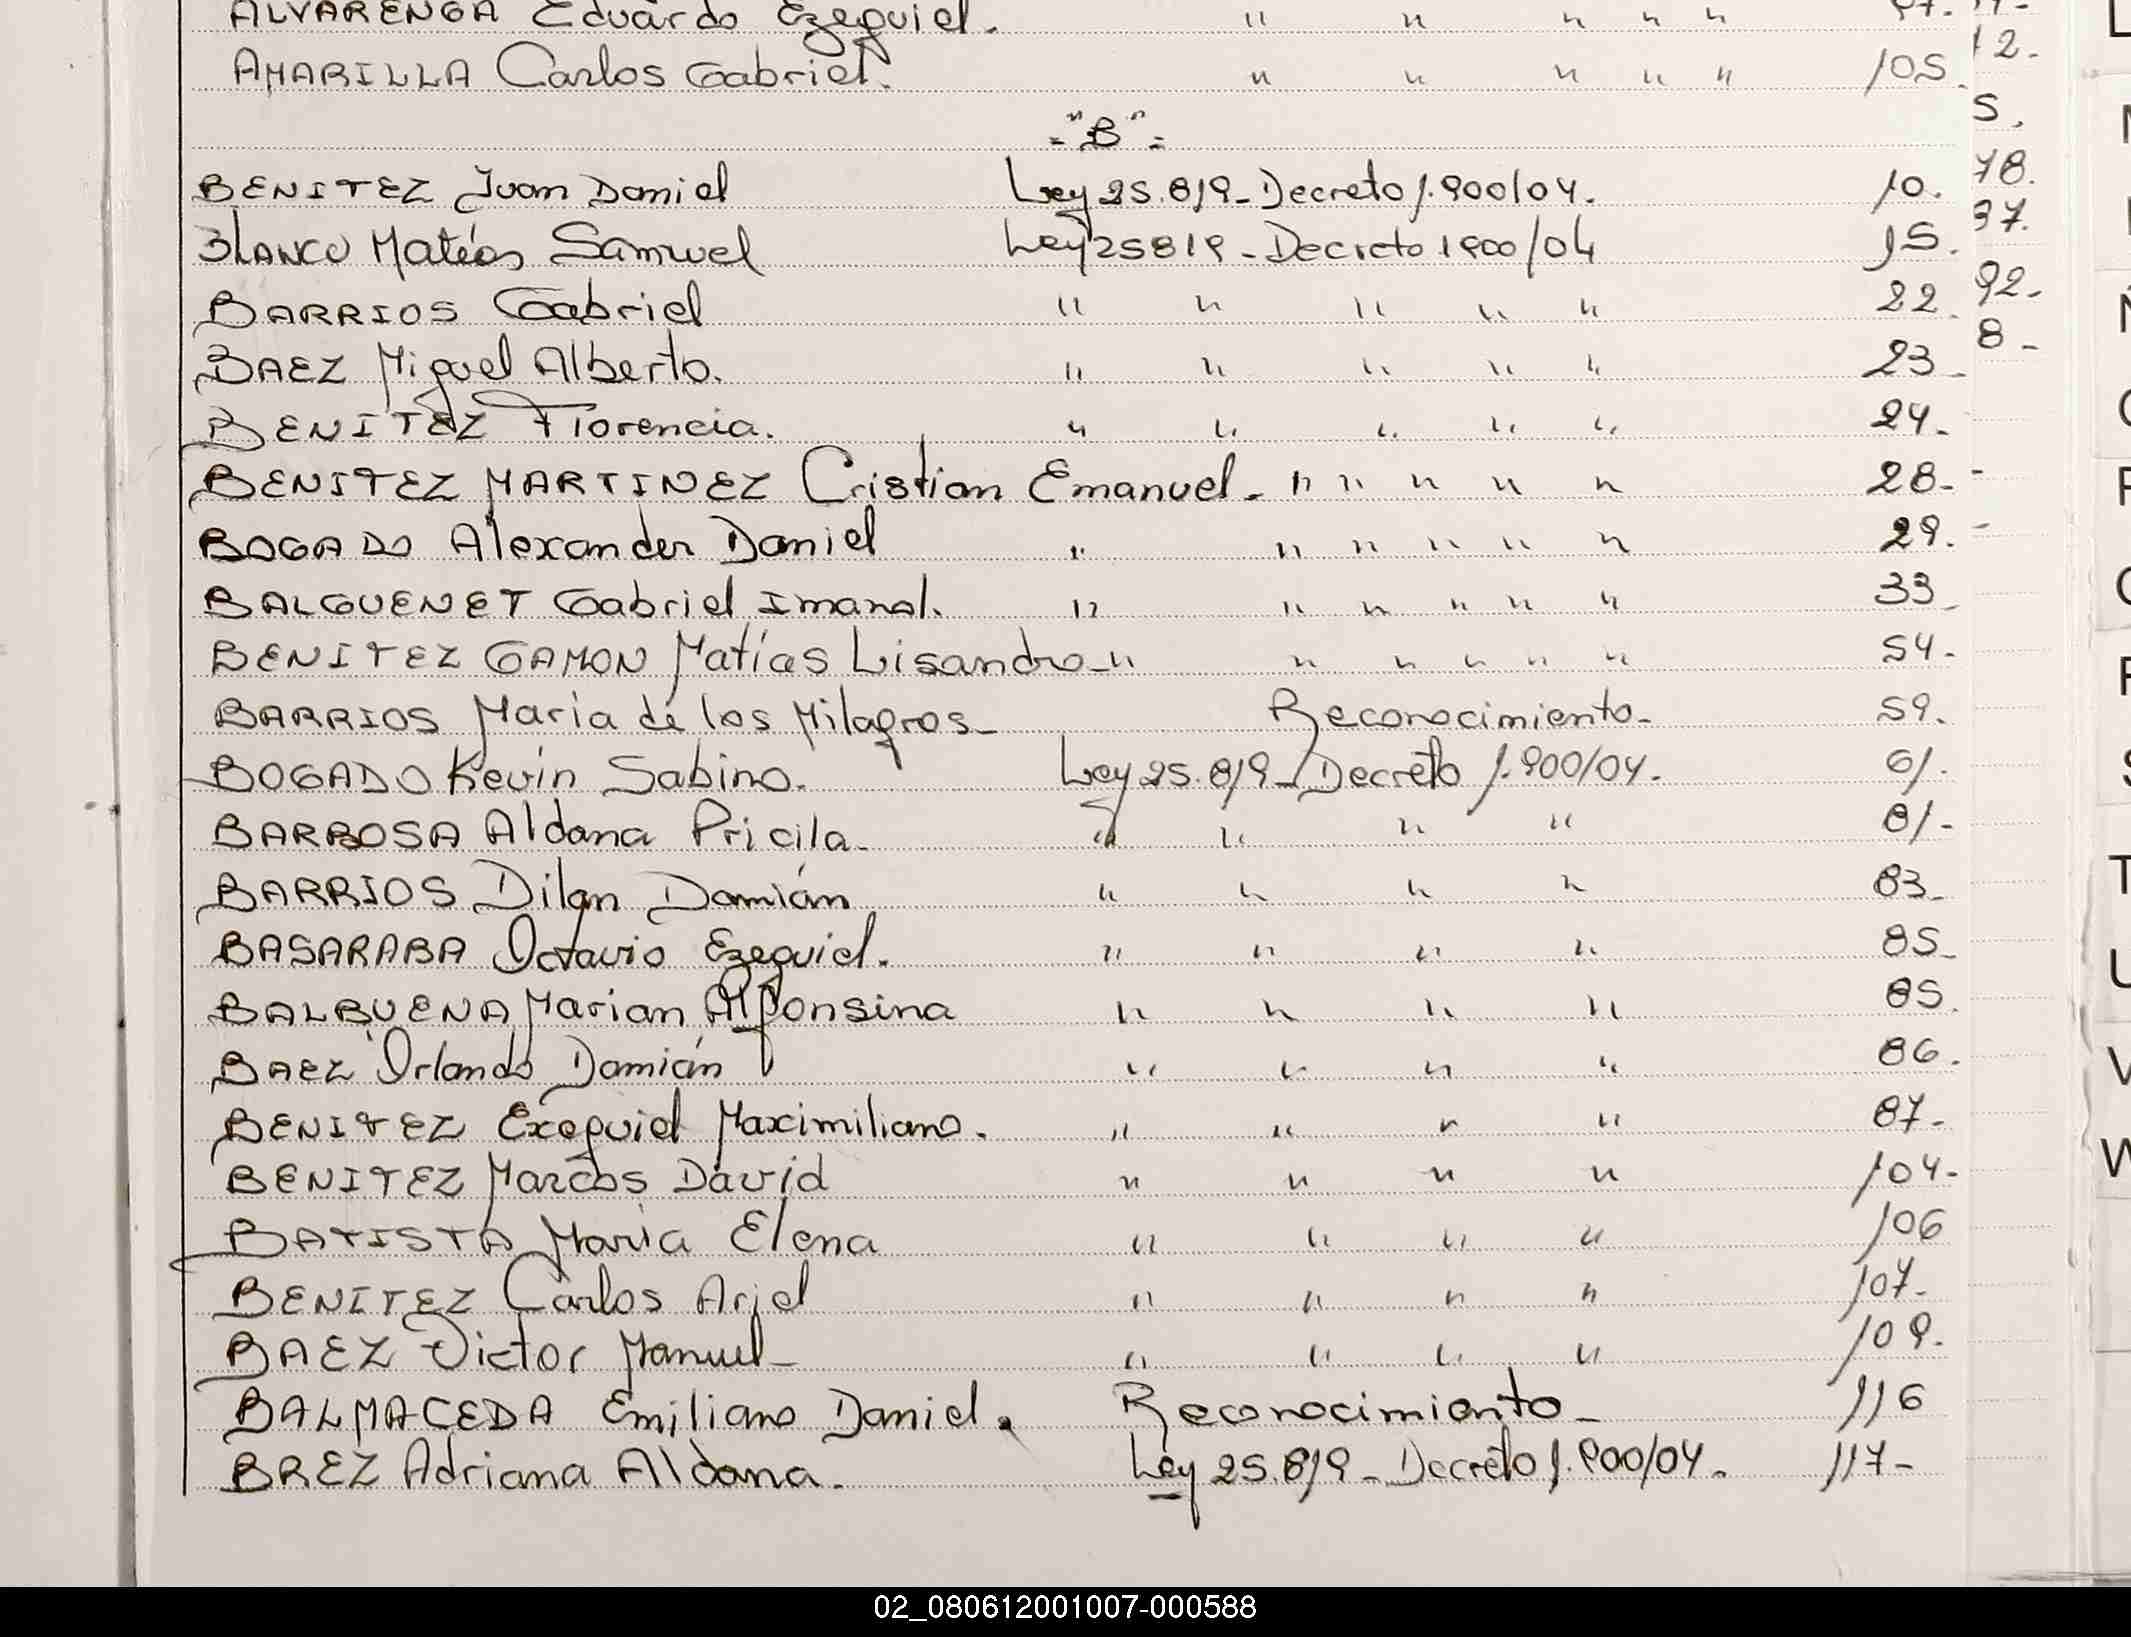 ALVARENGA Eduardo Ezequiel. " " " " " 97.
AMARILLA Carlos Gabriel. " " " " " 105.
12.
S.
="B"=
78.
BENITEZ Juan Daniel Ley 25.819- Decreto 1.900/04. 10.
37.
BLANCO Matías Samuel Ley 25819 - Decreto 1900/04 15.
92-
BARRIOS Gabriel " " " " " 22.
8-
BAEZ Miguel Alberto. " " " " " 23-
BENITEZ Florencia. " " " " " 24-
BENITEZ MARTINEZ Cristian Emanuel- " " " " " 28-
BOGADO Alexander Daniel " " " " " " 29.
BALGUENET Gabriel Imanol. " " " " " " 33-
BENITEZ GAMON Matías Lisandro-" " " " " " 54-
BARRIOS María de los Milagros- Reconocimiento- 59.
BOGADO Kevin Sabino. Ley 25.819- Decreto 1.900/04. 61.
BARBOSA Aldana Pricila- " " " " 81-
BARRIOS Dilan Damián " " " " 83-
BASARABA Octavio Ezequiel. " " " " 85-
BALBUENA Marian Alfonsina " " " " 85.
BAEZ Orlando Damián " " " " 86.
BENITEZ Exequiel Maximiliano. " " " " 87-
BENITEZ Marcos David " " " " 104-
BATISTA María Elena " " " " 106
BENITEZ Carlos Ariel " " " " 107-
BAEZ Victor Manuel- " " " " 109.
BALMACEDA Emiliano Daniel. Reconocimiento- 116
BREZ Adriana Aldana. Ley 25.819- Decreto 1.900/04. 117-
T
V
W
02_080612001007-000588